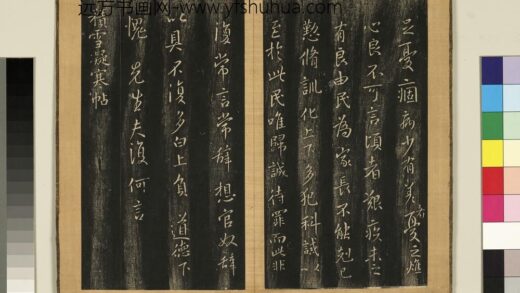 远方书画网-www.yfshuhua.com
之憂痼病少有差
心良不可言頃者
有良由民為家長不能克己
懃脩訓化上下多犯科誡以
至於此民唯歸誠待罪而此非
復常言常辞想官奴辞
以具不復多白上負道德下
愧先生夫復何言
積雪凝寒帖